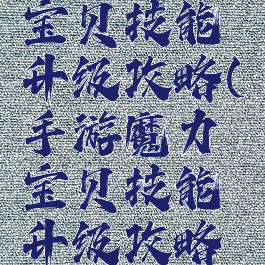 宝贝技能
升级攻略(
手游魔力
宝贝技能
升级攻略